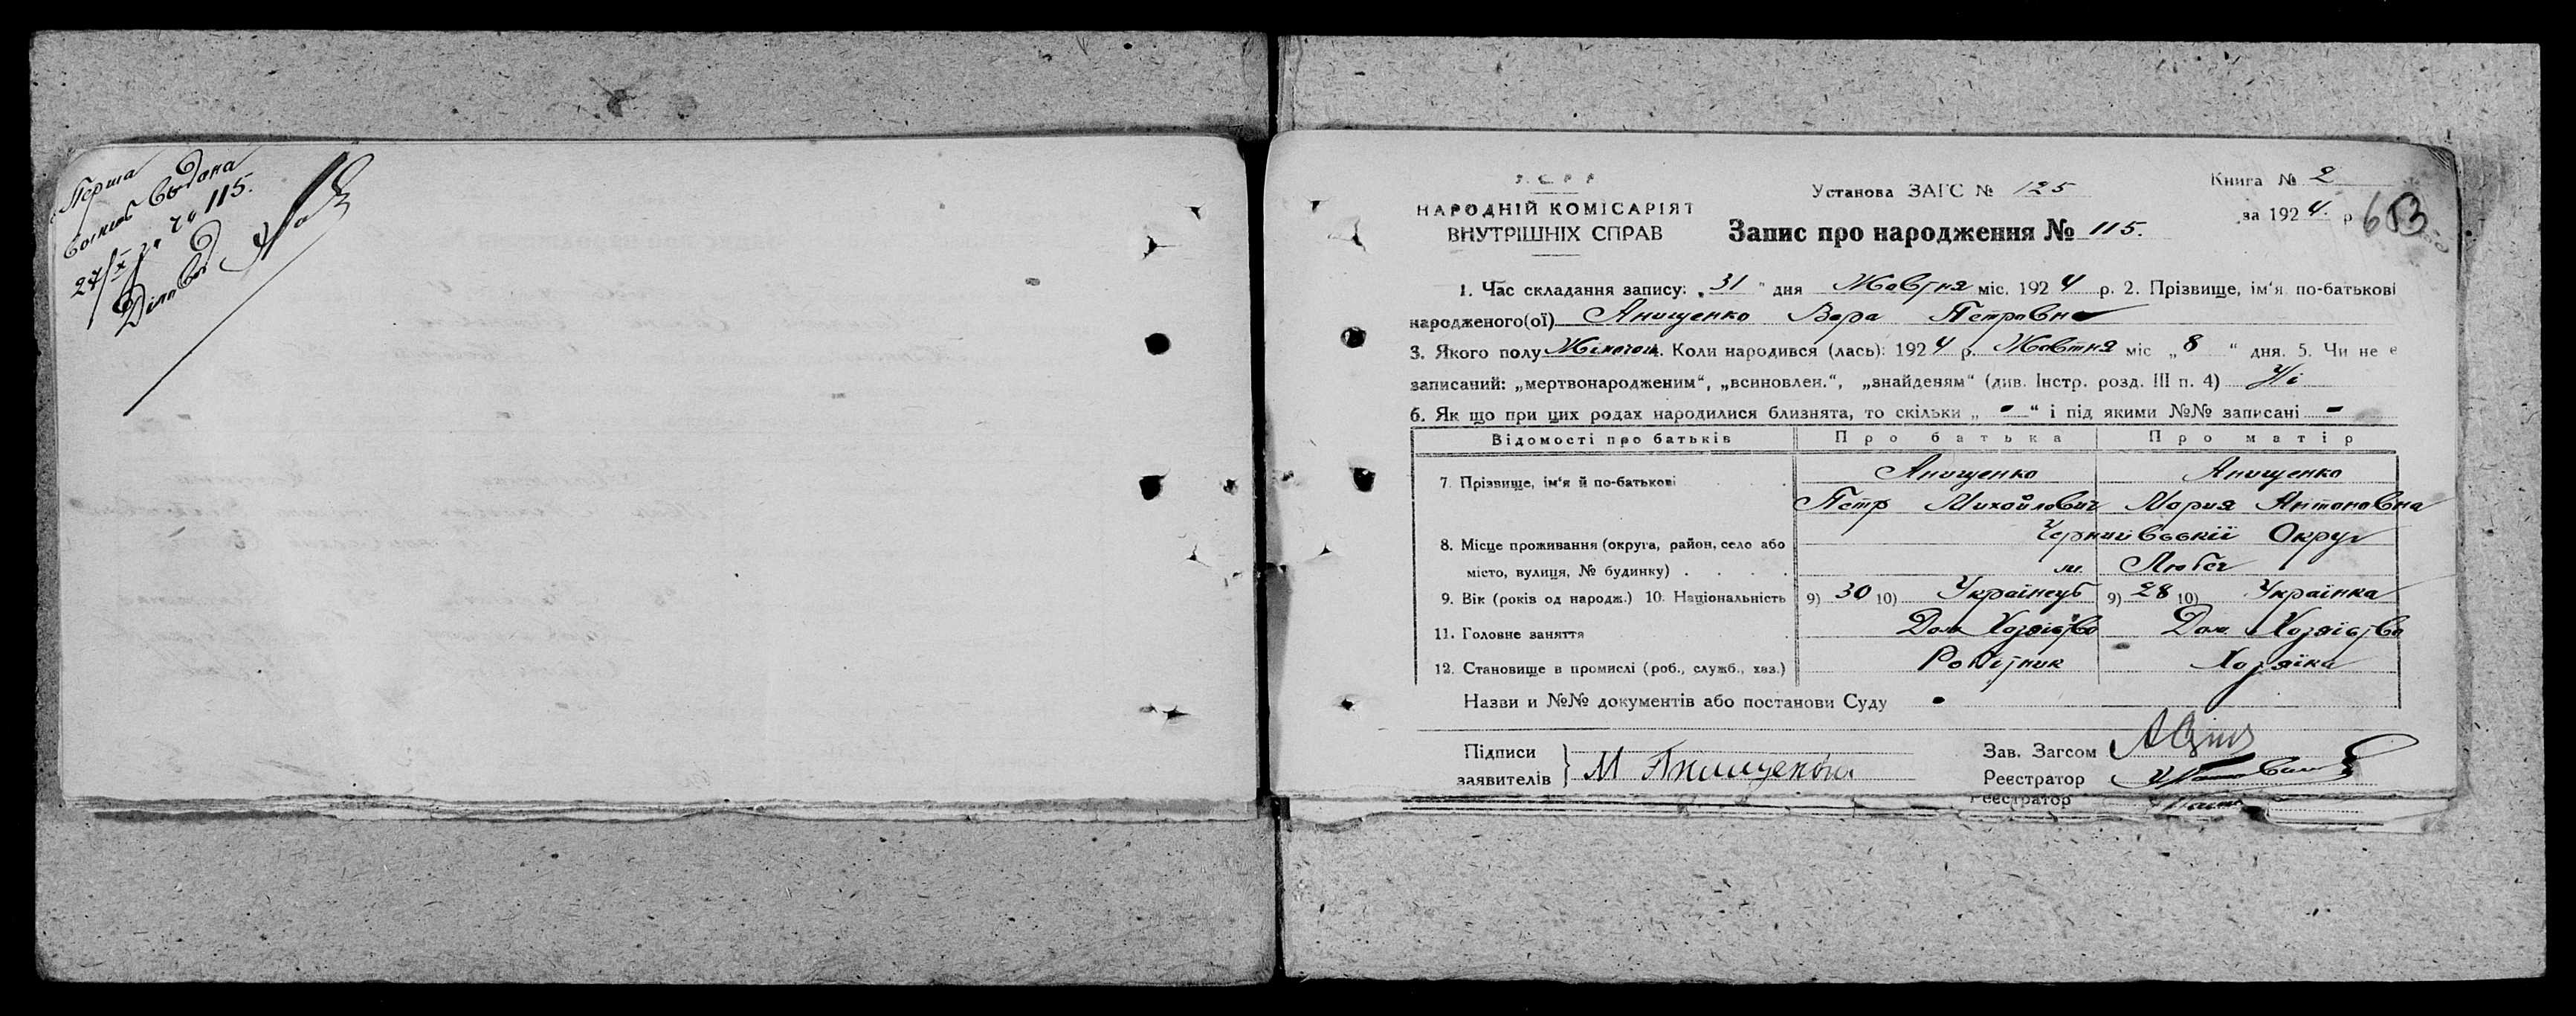 Перша
выдана
27/X за № 115.
Діловод
У.С.Р.Р.
НАРОДНІЙ КОМІСАРІЯТ
ВНУТРІШНІХ СПРАВ
Установа ЗАГС № 125
Книга № 2
Запис про народження № 115.
за 1924. р
653
1. Час складання запису: „31“ дня Жовтня міс. 1924 р. 2. Прізвище, ім'я по-батькові
народженого(ої) Анищенко Вера Петровна
3. Якого полу Жіночої 4. Коли народився (лась): 1924 р. Жовтня міс „8“ дня. 5. Чи не є
записаний: „мертвонародженим“, „всиновлен.“, „знайденям“ (див. Інстр. розд. III п. 4) Ні
6. Як що при цих родах народилися близнята, то скільки „-“ і під якими №№ записані -
Відомості про батьків Про батька Про матір
7. Прізвище, ім'я й по-батькові Анищенко Анищенко
Петр Михайлович Мария Антоновна
8. Місце проживання (округа, район, село або Округ
місто, вулиця, № будинку) м. Любеч
9. Вік (років од народж.) 10. Національність 9) 30 10) Українець 9) 28 10) Українка
11. Головне заняття Дом. Хозяйство Дом. Хозяйство
12. Становище в промислі (роб., служб., хаз.) Робітник Хозяйка
Назви и №№ документів або постанови Суду -
Підписи
заявителів М Анищенкова
Зав. Загсом
Реєстратор
Реєстратор